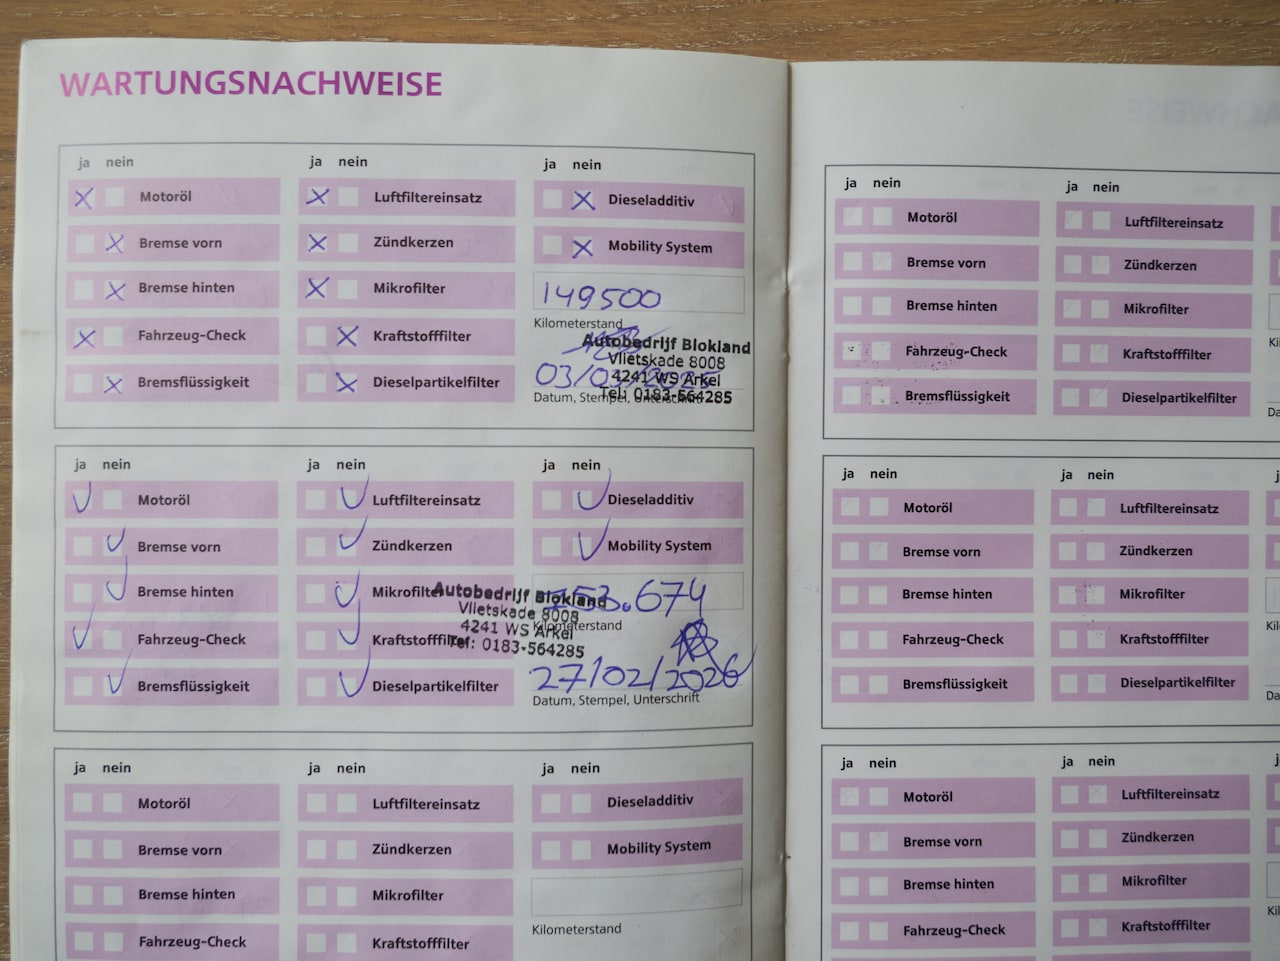 WARTUNGSNACHWEISE
ja nein
Motoröl
Bremse vorn
Bremse hinten
Fahrzeug-Check
Bremsflüssigkeit
ja nein
Luftfiltereinsatz
Zündkerzen
Mikrofilter
Kraftstofffilter
Dieselpartikelfilter
ja nein
Dieseladditiv
Mobility System
149500
Kilometerstand
Autobedrijf Blokland
Vlietskade 8008
4241 WS Arkel
Tel: 0183-564285
03/03/2025
Datum, Stempel, Unterschrift
ja nein
Motoröl
Bremse vorn
Bremse hinten
Fahrzeug-Check
Bremsflüssigkeit
ja nein
Luftfiltereinsatz
Zündkerzen
Mikrofilter
Kraftstofffilter
Dieselpartikelfilter
ja nein
Dieseladditiv
Mobility System
Autobedrijf Blokland
Vlietskade 8008
4241 WS Arkel
Tel: 0183-564285
153.674
Kilometerstand
27/02/2026
Datum, Stempel, Unterschrift
ja nein
Motoröl
Bremse vorn
Bremse hinten
Fahrzeug-Check
ja nein
Luftfiltereinsatz
Zündkerzen
Mikrofilter
Kraftstofffilter
ja nein
Dieseladditiv
Mobility System
Kilometerstand
ja nein
Motoröl
Bremse vorn
Bremse hinten
Fahrzeug-Check
Bremsflüssigkeit
ja nein
Luftfiltereinsatz
Zündkerzen
Mikrofilter
Kraftstofffilter
Dieselpartikelfilter
ja nein
Motoröl
Bremse vorn
Bremse hinten
Fahrzeug-Check
Bremsflüssigkeit
ja nein
Luftfiltereinsatz
Zündkerzen
Mikrofilter
Kraftstofffilter
Dieselpartikelfilter
ja nein
Motoröl
Bremse vorn
Bremse hinten
Fahrzeug-Check
ja nein
Luftfiltereinsatz
Zündkerzen
Mikrofilter
Kraftstofffilter